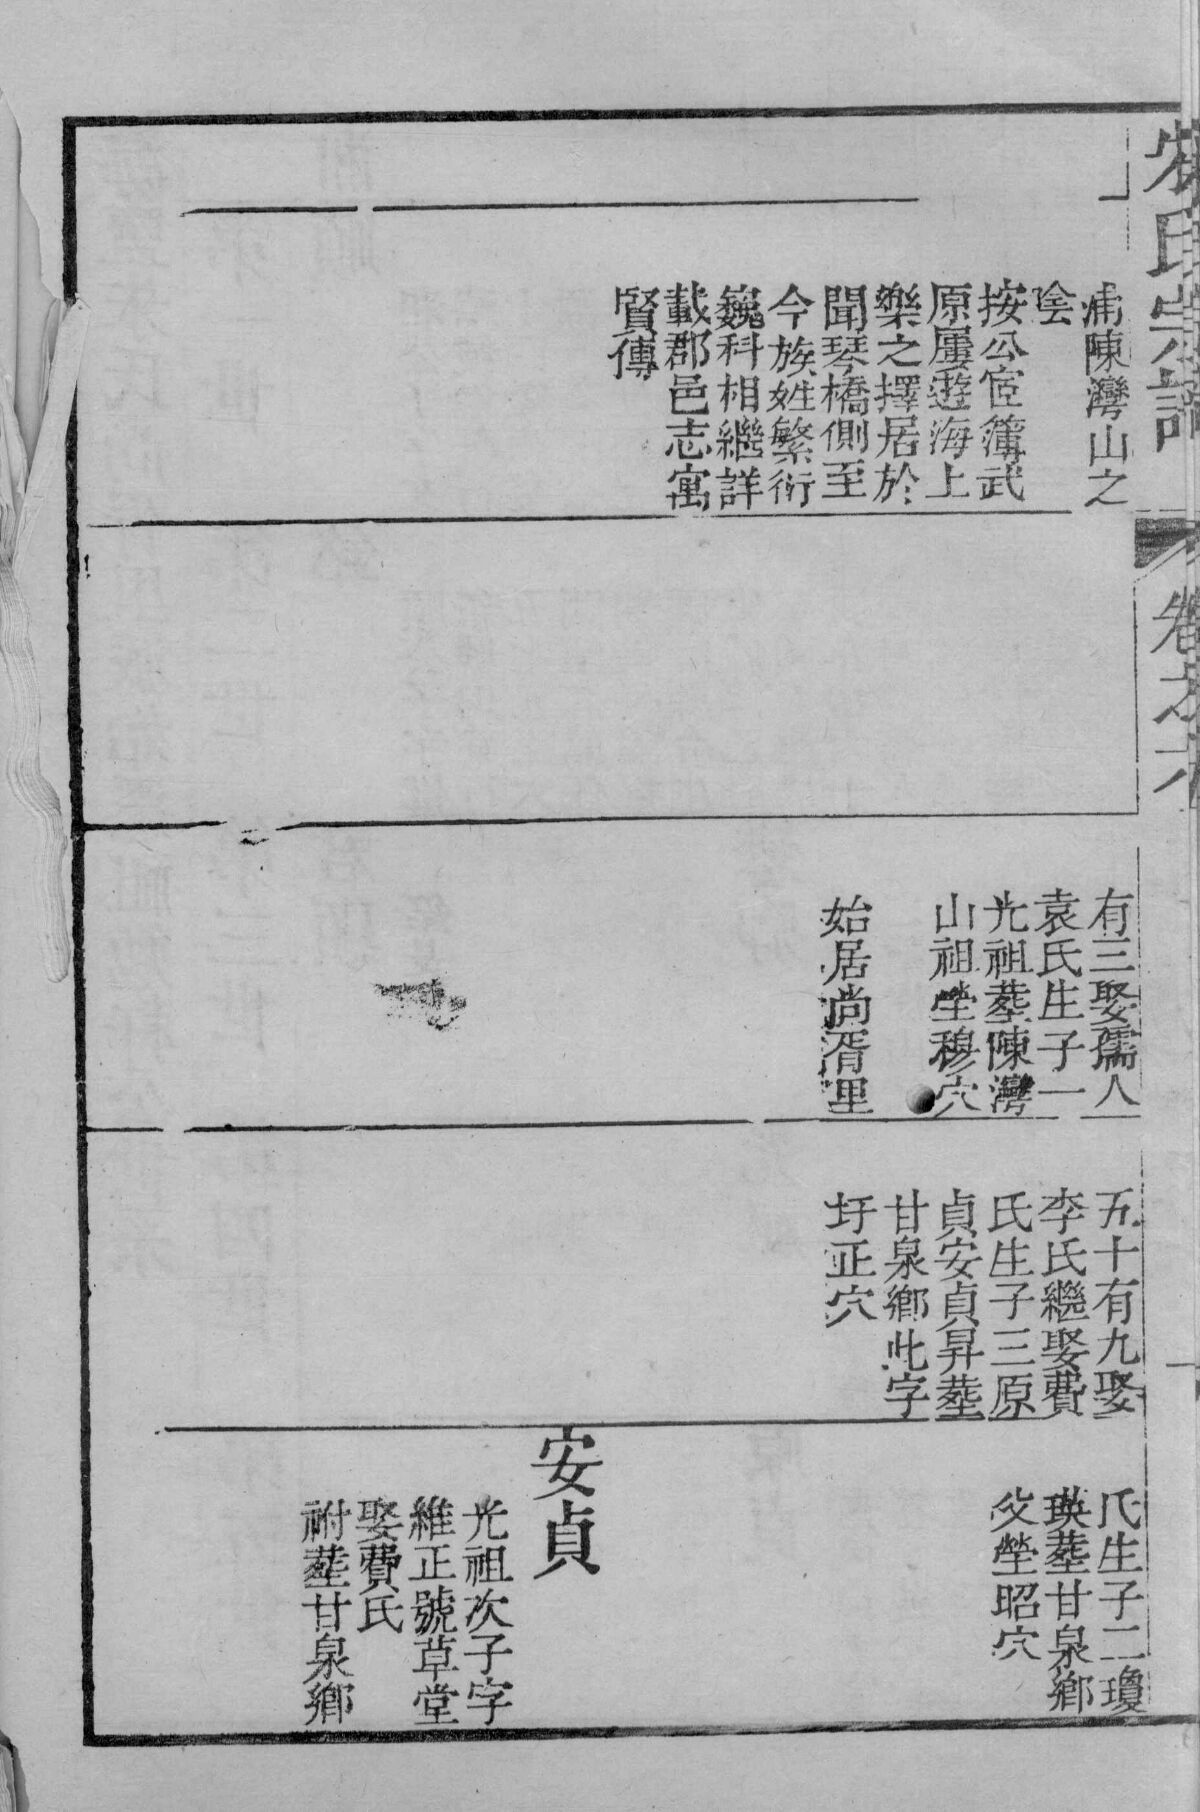 氏宗譜
卷之六
浦陳灣山之
陰
按公宦簿武
原屢遊海上
樂之擇居於
聞琴橋側至
今族姓繁衍
巍科相繼詳
載郡邑志寓
賢傳
有三娶孺人
袁氏生子一
光祖塟陳灣
山祖塋穆穴
始居尚胥里
五十有九娶
李氏繼娶費
氏生子三原
貞安貞昇塟
甘泉鄉此字
圩正穴
氏生子二瓊
瑛塟甘泉鄉
父塋昭穴
安貞
光祖次子字
維正號草堂
娶費氏
祔塟甘泉鄉